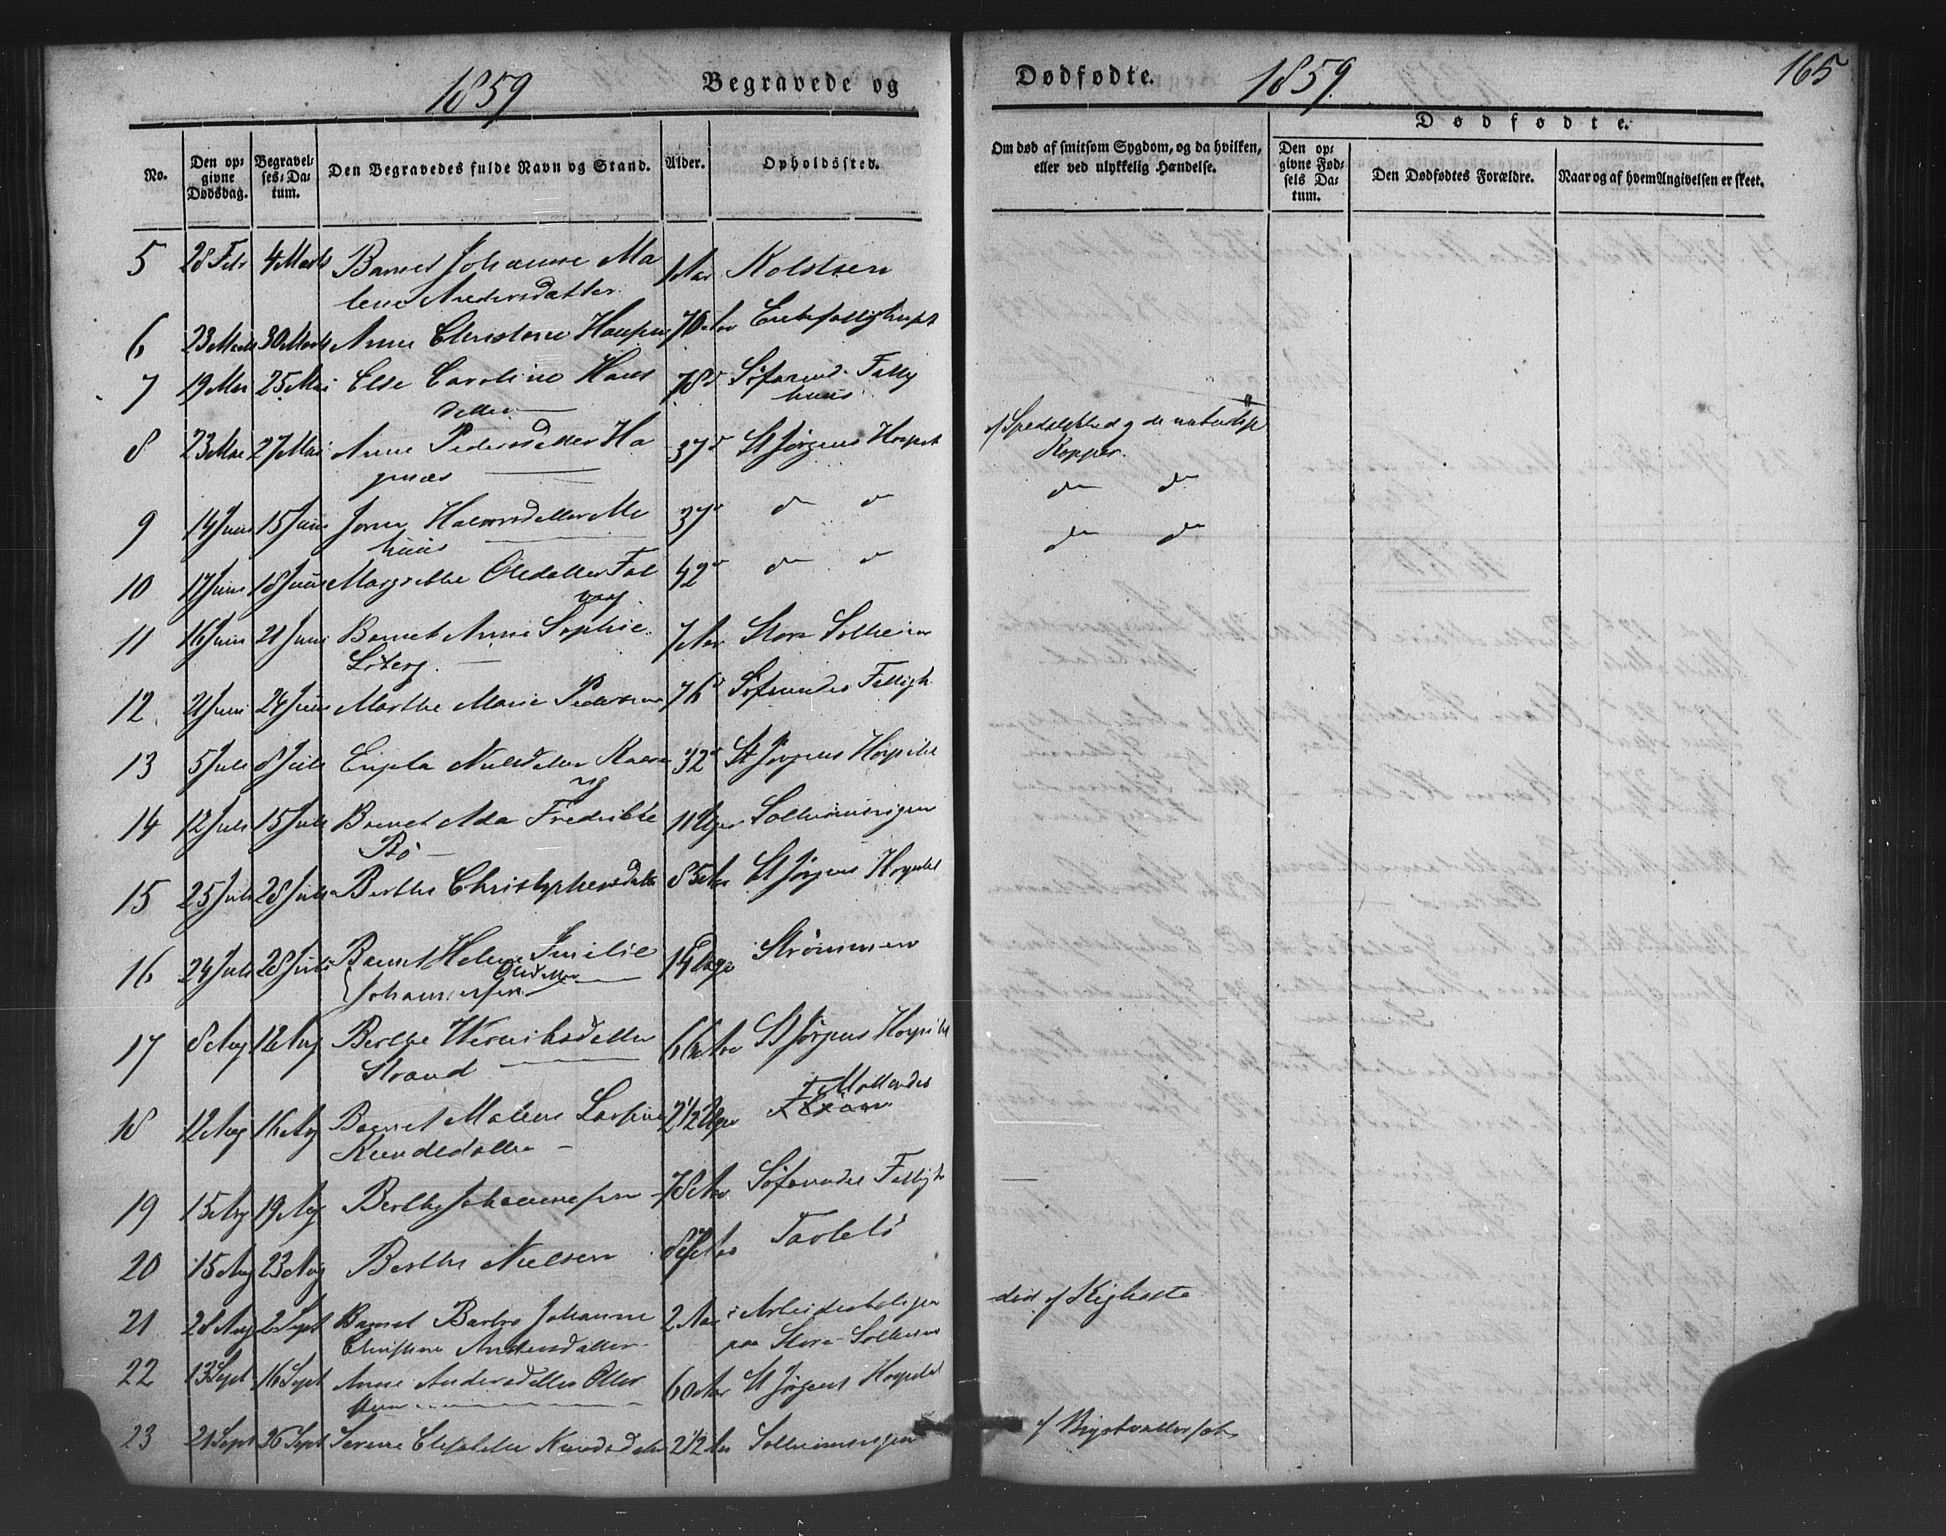 1859 Begravede og Dødfødte. 1859 165
No. Den opgivne Dødsdag. Begravelses-Datum. Den Begravedes fulde Navn og Stand. Alder. Opholdssted. Om død af smitsom Sygdom, og da hvilken, eller ved ulykkelig Hændelse.
Dødfødte.
Den opgivne Fødsels Datum. Den Dødfødtes Forældre. Naar og af hvem Angivelsen er skeet.
5 28 Febr 4 Marts Barnet Johanne Ma
lene Andersdatter 1 Aar
6 23 Marts 30 Marts Anne Christine 70 Aar
7 19 Mai 25 Mai Else Caroline Hans
datter 78 Søfarend. Fattig
huus
8 23 Mai 27 Mai Anne Pedersdatter Ha
37 St Jørgens Hospit af Spedalskhed og de naturlige
Kopper.
9 14 Juni 15 Juni 37 do do do do
huus
10 17 Juni 18 Juni Margrethe Olsdatter 42 do do do do
11 16 Juni 21 Juni Barnet Anne Sophie
7 Aar Store Solheim
12 21 Juni 24 Juni Marthe Marie Pedersen 76 Søfarendes Fattigh
13 5 Juli 8 Juli Nielsdatter 32 St Jørgens Hospital
14 12 Juli 15 Juli Barnet Ada Fredrikke
Bö 11 Uger Solheimsvigen
15 25 Juli 28 Juli Berthe Christophersdatter 85 Aar St Jørgens Hospital
16 24 Juli 28 Juli Barnet Helene Emilie
Johannessen Olsdatter 14 Dage Strømmen
17 8 Aug 12 Aug Berthe Henriksdatter
Strand 66 Aar St Jørgens Hospital
18 12 Aug 16 Aug Barnet Malene
Knudsdatter 2 1/2 Uger Møllendal
19 15 Aug 19 Aug Berthe Johannessen 78 Aar Søfarendes Fattigh
20 15 Aug 23 Aug Berthe Nielsen Aar
21 28 Aug 2 Sept Barnet Barbro Johanne
Christine Andersdatter 2 Aar i Arbeiderboligen
paa Store Solheim død af Kighoste
22 13 Sept 16 Sept Anne Andersdatter
60 Aar St Jørgens Hospital
23 21 Sept 26 Sept Serine Knudsdatter 2 1/2 Aar Solheimsvigen af